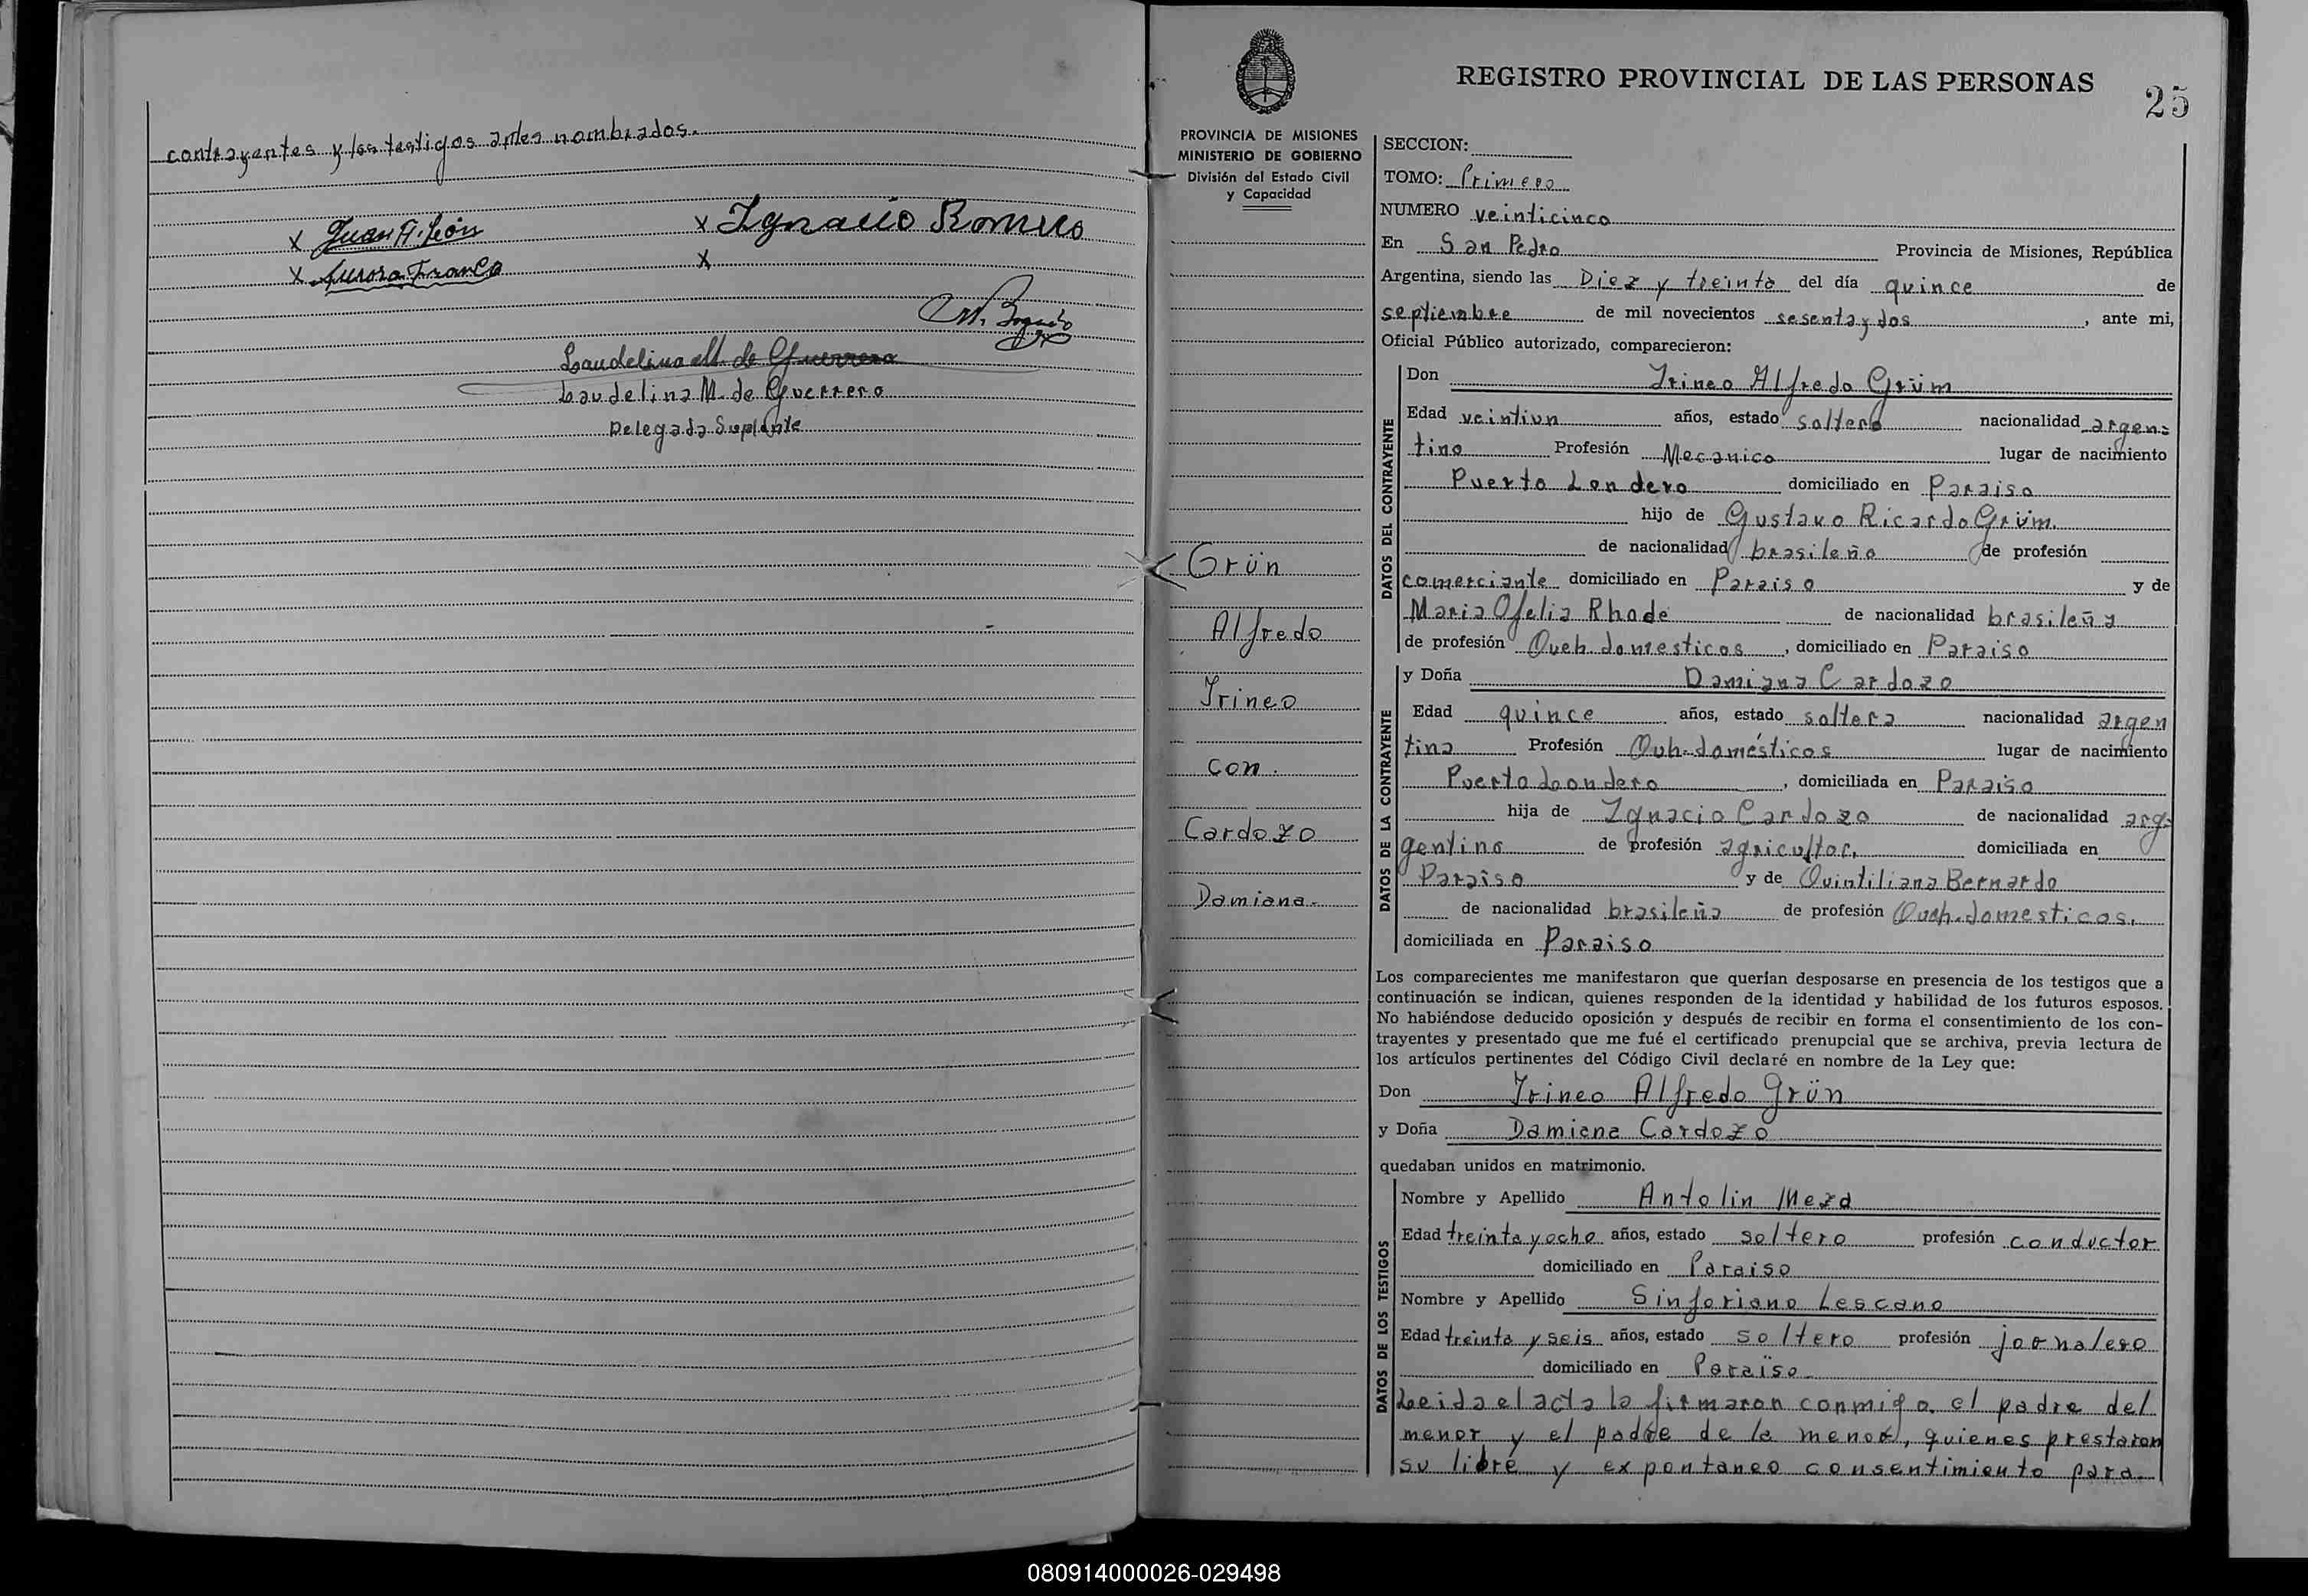 contrayentes y los testigos antes nombrados.
x Juan A. León x Ignacio Romero
x Aurora Franco x
Laudelina M. de Guerrero
Laudelina M. de Guerrero
Delegada Suplente
REGISTRO PROVINCIAL DE LAS PERSONAS
25
PROVINCIA DE MISIONES
MINISTERIO DE GOBIERNO
División del Estado Civil
y Capacidad
Grün
Alfredo
Irineo
con.
Cardozo
Damiana.
SECCION:
TOMO: Primero
NUMERO veinticinco
En San Pedro Provincia de Misiones, República
Argentina, siendo las Diez y treinta del día quince de
septiembre de mil novecientos sesenta y dos, ante mi,
Oficial Público autorizado, comparecieron:
DATOS DEL CONTRAYENTE
Don Irineo Alfredo Grüm
Edad veintiun años, estado soltero nacionalidad argen=
tino Profesión Mecanico lugar de nacimiento
Puerto Londero domiciliado en Paraiso
hijo de Gustavo Ricardo Grüm.
de nacionalidad brasileño de profesión
comerciante domiciliado en Paraiso y de
Maria Ofelia Rhode de nacionalidad brasileña
de profesión Queh. domesticos, domiciliado en Paraiso
DATOS DE LA CONTRAYENTE
y Doña Damiana Cardozo
Edad quince años, estado soltera nacionalidad argen
tina Profesión Quh. domésticos lugar de nacimiento
Puerto Londero, domiciliada en Paraiso
hija de Ignacio Cardozo de nacionalidad arg=
gentino de profesión agricultor, domiciliada en
Paraiso y de Quintiliana Bernardo
de nacionalidad brasileña de profesión Queh. domesticos,
domiciliada en Paraiso
Los comparecientes me manifestaron que querían desposarse en presencia de los testigos que a
continuación se indican, quienes responden de la identidad y habilidad de los futuros esposos.
No habiéndose deducido oposición y después de recibir en forma el consentimiento de los con-
trayentes y presentado que me fué el certificado prenupcial que se archiva, previa lectura de
los artículos pertinentes del Código Civil declaré en nombre de la Ley que:
Don Irineo Alfredo Grün
y Doña Damiana Cardozo
quedaban unidos en matrimonio.
DATOS DE LOS TESTIGOS
Nombre y Apellido Antolin Meza
Edad treinta y ocho años, estado soltero profesión conductor
domiciliado en Paraiso
Nombre y Apellido Sinforiano Lescano
Edad treinta y seis años, estado soltero profesión jornalero
domiciliado en Paraiso
Leida el acta la firmaron conmigo, el padre del
menor y el padre de la menor, quienes prestaron
su libre y expontaneo consentimiento para
080914000026-029498